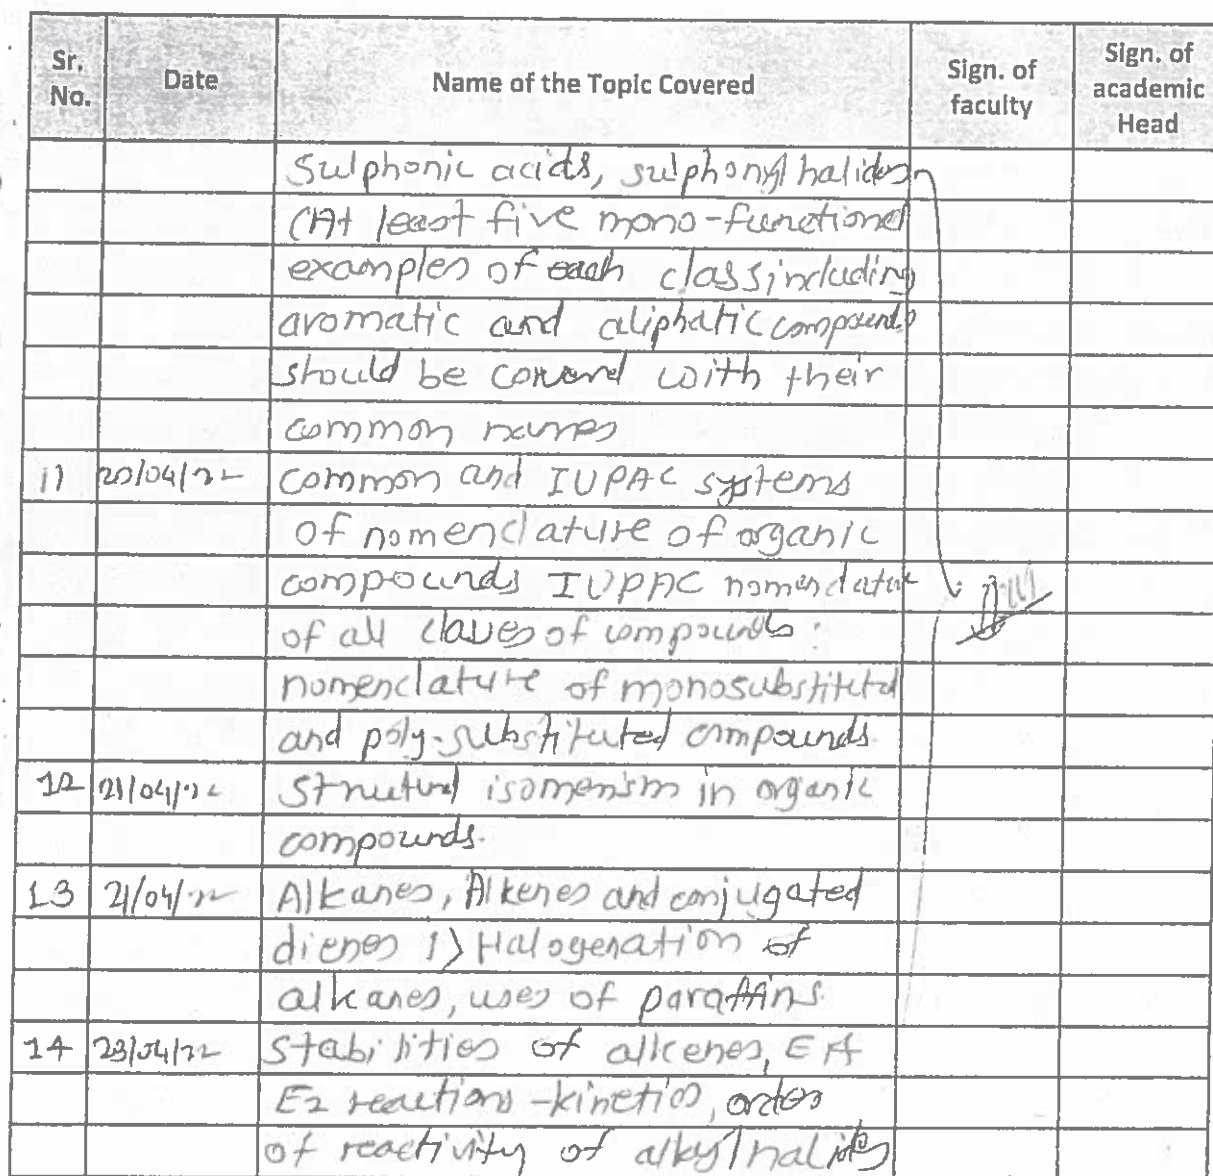 Sr. No. Date Name of the Topic Covered Sign. of faculty Sign. of academic Head
Sulphonic acids, sulphonyl halides
(At least five mono-functional
examples of each class including
aromatic and aliphatic compounds
should be covered with their
common names
11 20/04/22 common and IUPAC systems
of nomenclature of organic
compounds IUPAC nomenclature
of all classes of compounds :
nomenclature of monosubstituted
and poly-substituted compounds.
12 21/04/22 Structural isomerism in organic
compounds.
13 21/04/22 Alkanes, Alkenes and conjugated
dienes 1) Halogenation of
alkanes, uses of paraffins.
14 23/04/22 Stabilities of alkenes,
E2 reactions - kinetics, order
of reactivity of alkyl halides